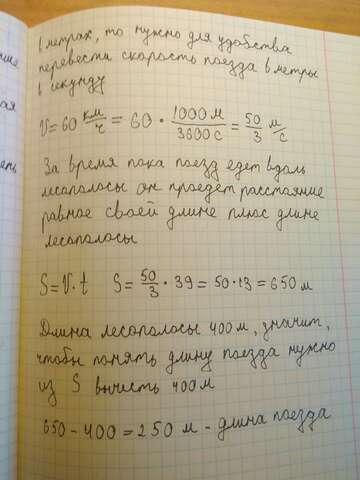 в метрах, то нужно для удобства
перевести скорость поезда в метры
в секунду
V = 60 км/ч = 60 · 1000м/3600с = 50/3 м/с
За время пока поезд едет вдоль
лесополосы он проедет расстояние
равное своей длине плюс длине
лесополосы
S = V · t S = 50/3 · 39 = 50 · 13 = 650 м
Длина лесополосы 400 м, значит,
чтобы понять длину поезда нужно
из S вычесть 400 м
650 - 400 = 250 м - длина поезда